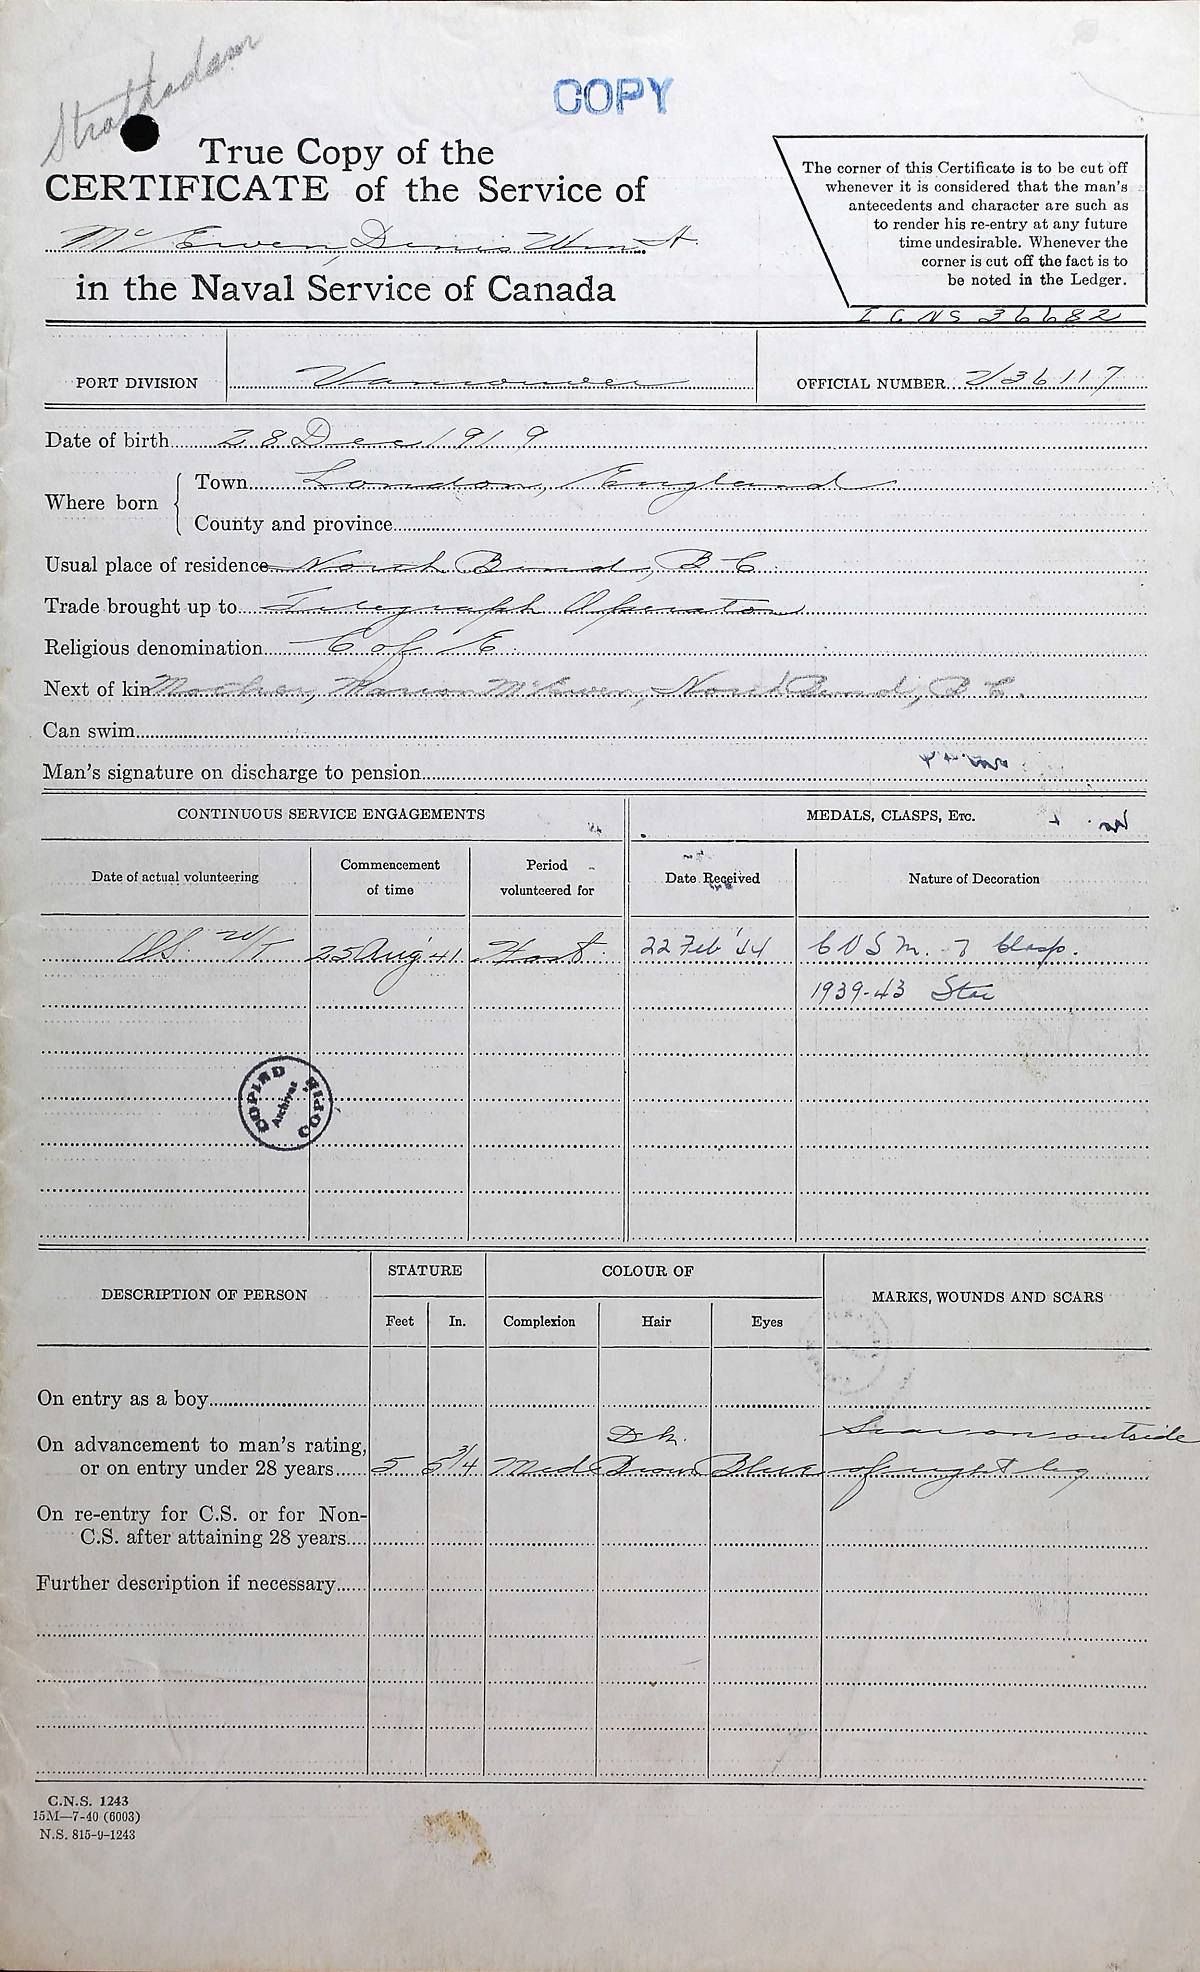 Strathadam
COPY
True Copy of the
CERTIFICATE of the Service of
McEwen, Denis Wm. A.
in the Naval Service of Canada
The corner of this Certificate is to be cut off
whenever it is considered that the man's
antecedents and character are such as
to render his re-entry at any future
time undesirable. Whenever the
corner is cut off the fact is to
be noted in the Ledger.
36682
PORT DIVISION Vancouver OFFICIAL NUMBER V/36117
Date of birth 28 Dec 1919
Where born Town London, England
County and province
Usual place of residence North Bend, BC
Trade brought up to Telegraph Operator
Religious denomination C of E
Next of kin Mother, Marion McEwen, North Bend, BC.
Can swim
Man's signature on discharge to pension
CONTINUOUS SERVICE ENGAGEMENTS MEDALS, CLASPS, ETC.
Date of actual volunteering Commencement of time Period volunteered for Date Received Nature of Decoration
W/T 25 Aug '41 Host. 22 Feb '44 CVSM. & Clasp.
1939-43 Star
COPIED COPIE Archives
DESCRIPTION OF PERSON STATURE COLOUR OF MARKS, WOUNDS AND SCARS
Feet In. Complexion Hair Eyes
On entry as a boy
On advancement to man's rating, Dk. Scar on outside
or on entry under 28 years 5 5 3/4 Med Brown Blue of right leg
On re-entry for C.S. or for Non-
C.S. after attaining 28 years
Further description if necessary
C.N.S. 1243
15M—7-40 (6003)
N.S. 815-9-1243